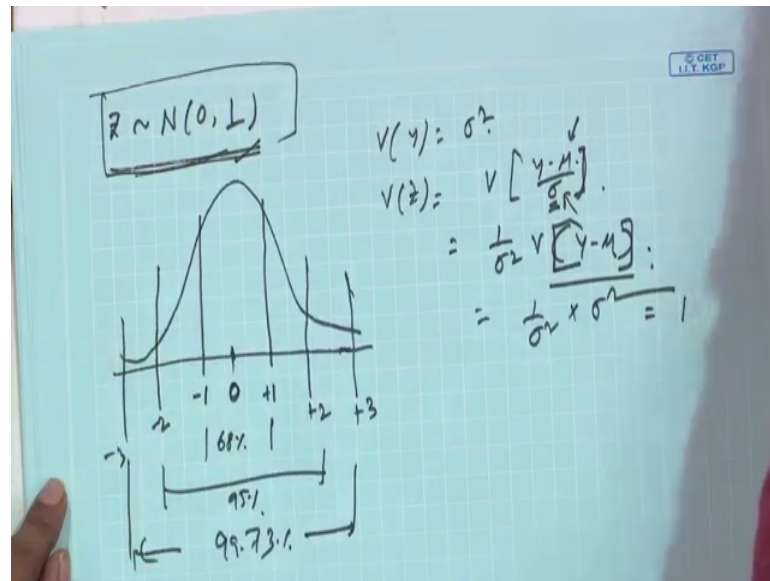 © CET
I.I.T. KGP
Z ~ N(0, 1)
V(y) = σ².
V(Z) = V[(y-μ)/σ].
= 1/σ² V[(y-μ)].
= 1/σ² × σ² = 1
-3 -2 -1 0 +1 +2 +3
68%
95%
99.73%